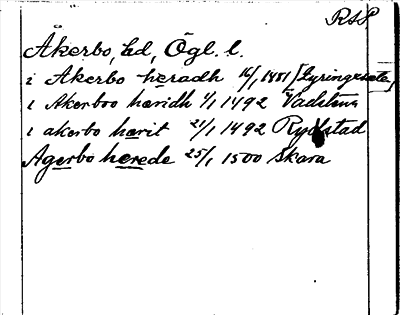 RAP
Åkerbo, hd, Ögl. l.
i Åkerbo heradh 16/1 1481 [Syringesæta]
i Akerboo hæridh 4/1 1492 Vadstena
i akerbo hærit 21/1 1492 Rydstad
Agerbo herede 25/1 1500 Skara